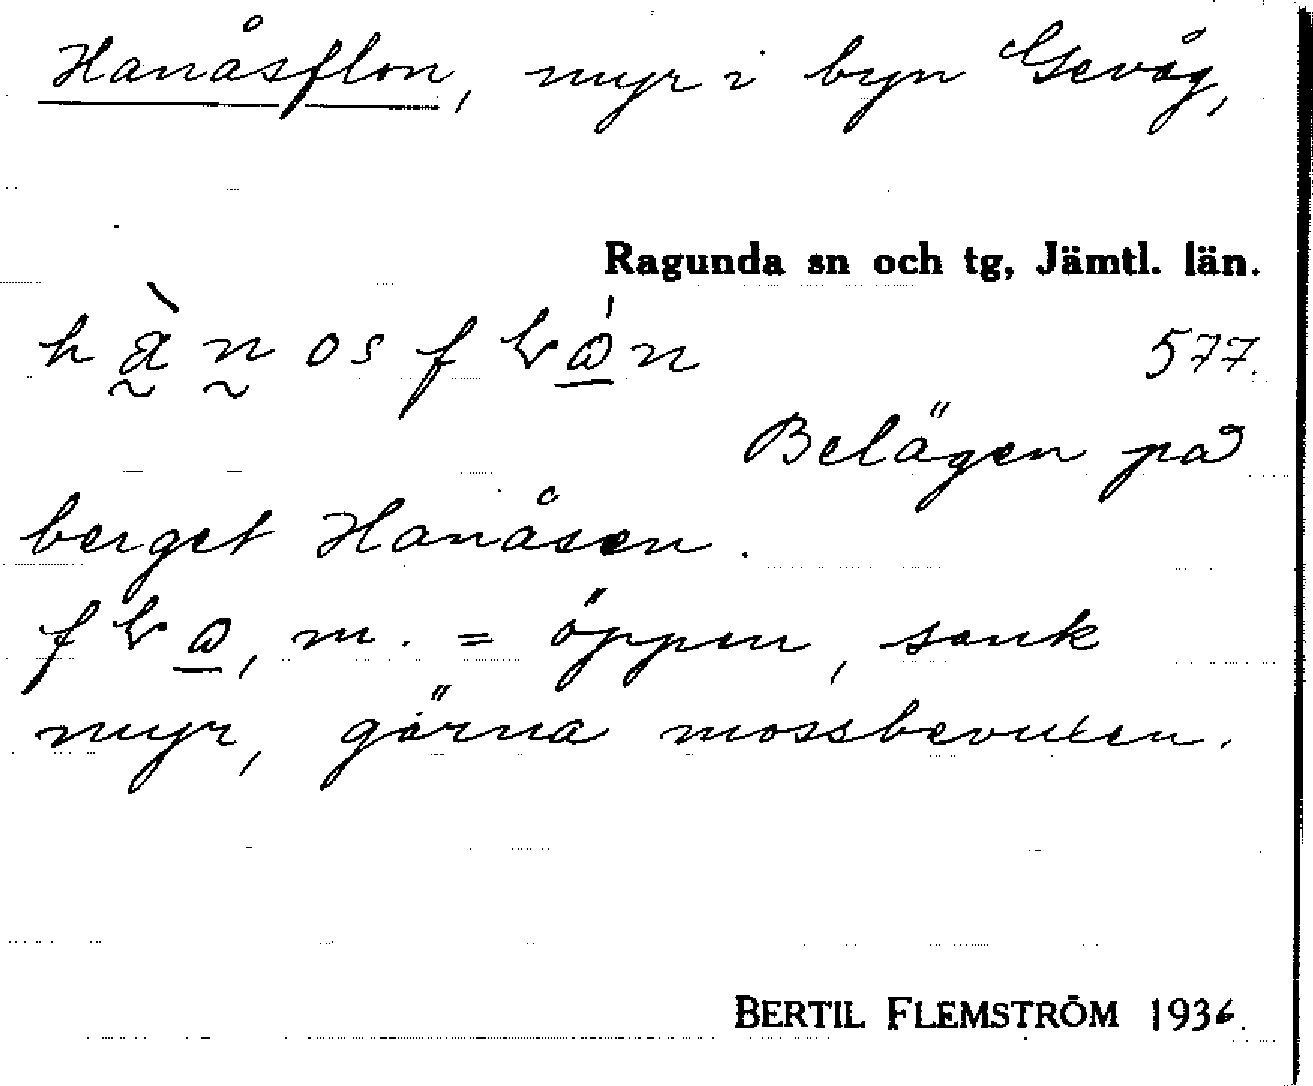 Hanåsflon, myr i byn Gevåg,
Ragunda sn och tg, Jämtl. län.
577.
Belägen på
berget Hanåsen.
m. = öppen, sank
myr, gärna mossbevuxen.
BERTIL FLEMSTRÖM 1936.